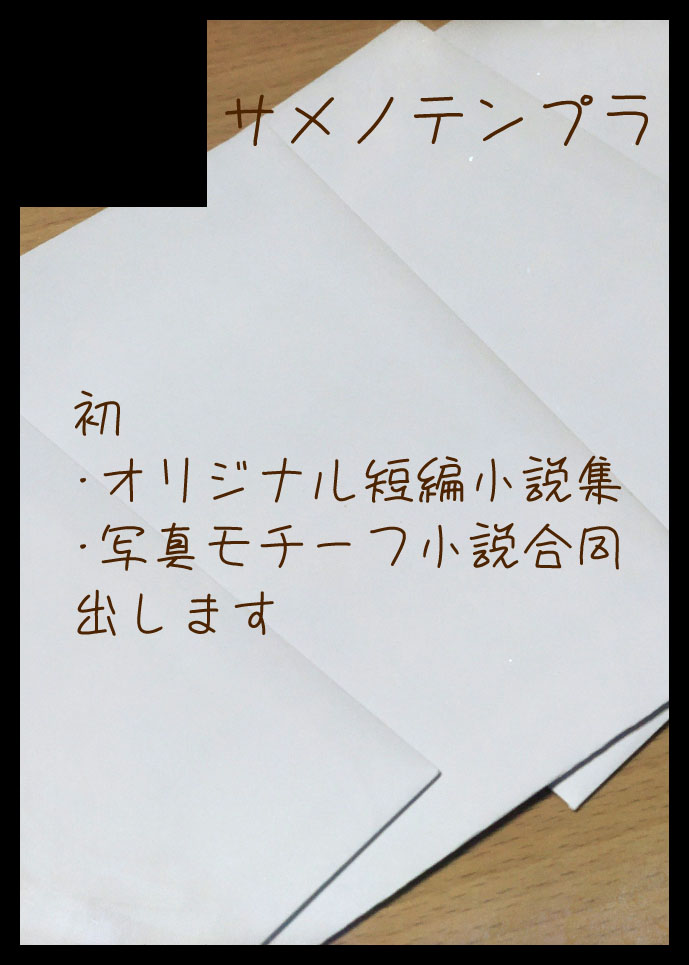 サメノテンプラ
初
・オリジナル短編小説集
・写真モチーフ小説合同
出します